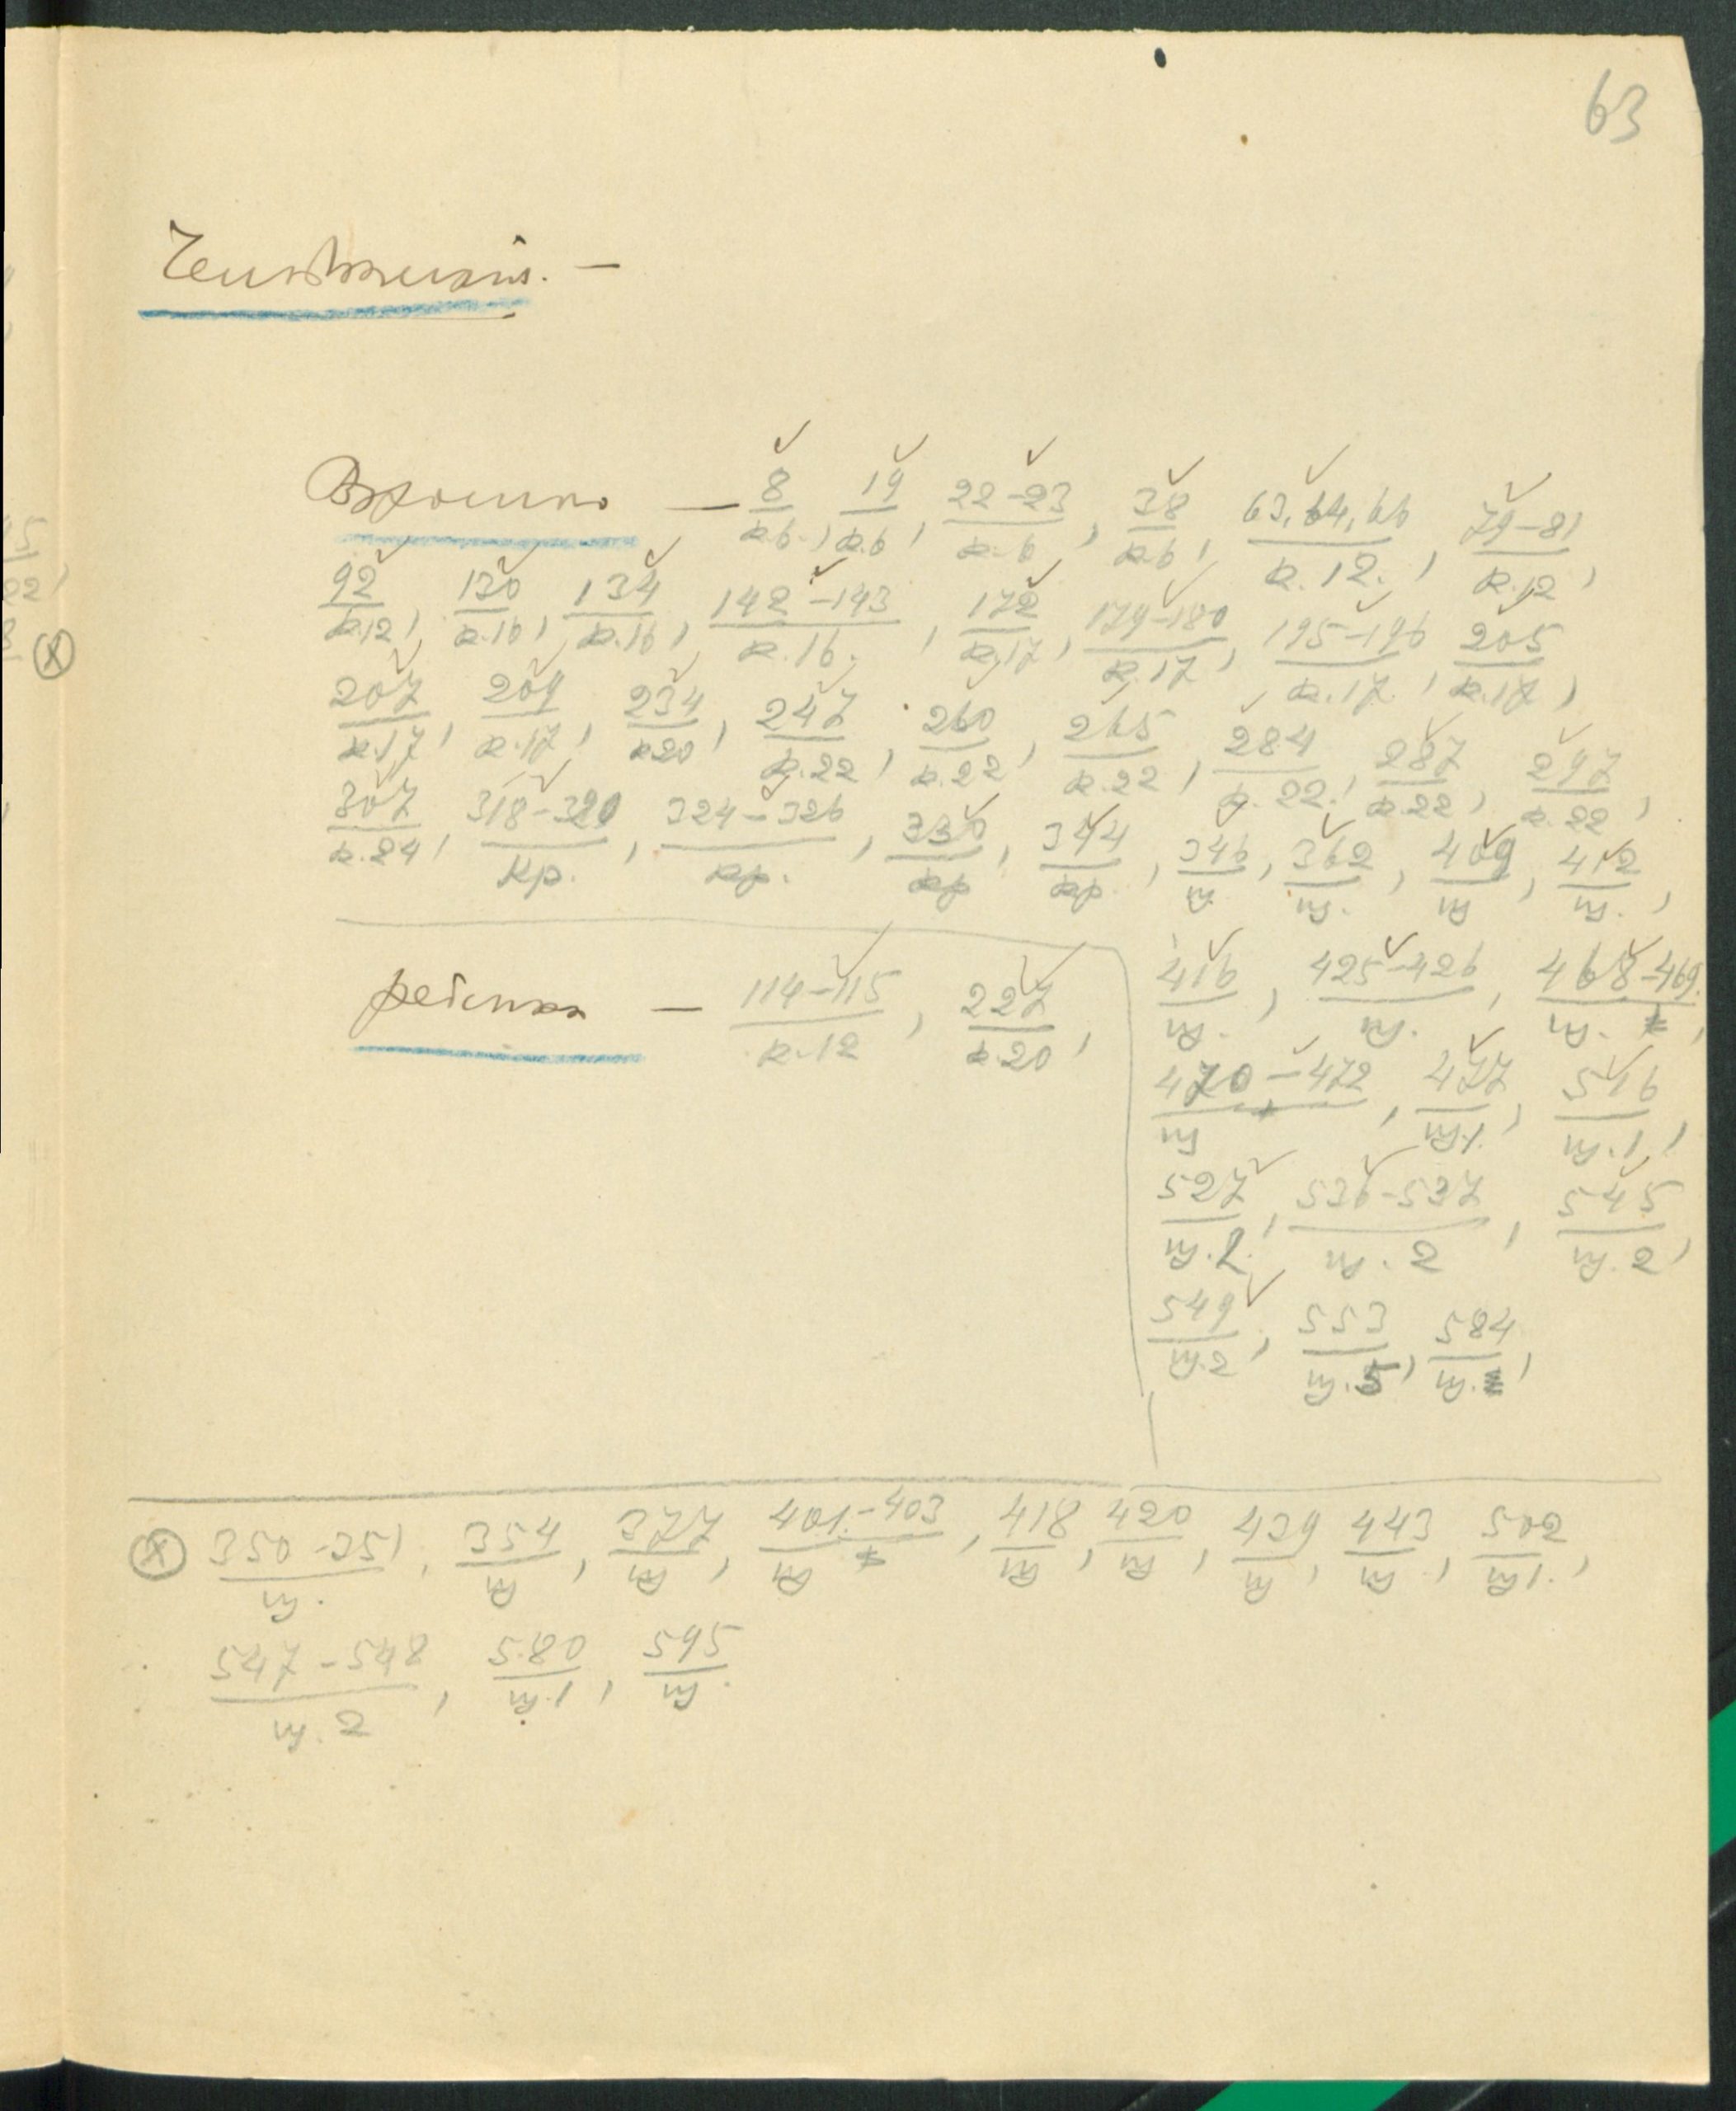 63
Взросло — 8/к.6, 19/к.6, 22-23/к.6, 38/к.6, 63, 64, 66/к.12., 79-81/к.12,
92/к.12, 130/к.16, 134/к.16, 142-143/к.16, 172/к.17, 179-180/к.17, 195-196/к.17, 205/к.17,
207/к.17, 209/к.17, 234/к.20, 247/к.22, 260/к.22, 265/к.22, 284/к.22, 287/к.22, 297/к.22,
307/к.24, 318-320/кр., 324-326/кр., 330/кр, 344/кр., 346/ш, 362/ш., 409/ш, 412/ш.,
ребенка — 114-115/к.12, 227/к.20,
416/ш., 425-426/ш., 468-469/ш.,
470-472/ш, 477/ш.1., 516/ш.1,
527/ш.2., 536-537/ш.2, 545/ш.2,
549/ш.2, 553/ш.5, 584/ш.
(X) 350-351/ш., 354/ш, 377/ш, 401-403/ш, 418/ш, 420/ш, 439/ш, 443/ш, 502/ш1.,
547-548/ш.2, 580/ш.1, 595/ш.